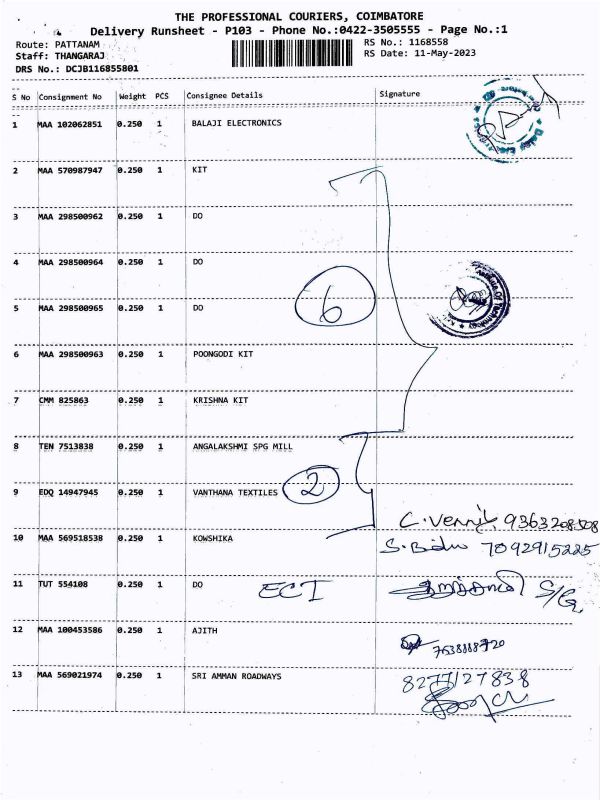 THE PROFESSIONAL COURIERS, COIMBATORE
Delivery Runsheet - P103 - Phone No.:0422-3505555 - Page No.:1
Route: PATTANAM RS No.: 1168558
Staff: THANGARAJ RS Date: 11-May-2023
DRS No.: DCJB116855801
S No Consignment No Weight PCS Consignee Details Signature
1 MAA 102062851 0.250 1 BALAJI ELECTRONICS
2 MAA 570987947 0.250 1 KIT
3 MAA 298500962 0.250 1 DO
4 MAA 298500964 0.250 1 DO
5 MAA 298500965 0.250 1 DO
6
6 MAA 298500963 0.250 1 POONGODI KIT
7 CMM 825863 0.250 1 KRISHNA KIT
8 TEN 7513838 0.250 1 ANGALAKSHMI SPG MILL
9 EDQ 14947945 0.250 1 VANTHANA TEXTILES 2
C. 9363208508
10 MAA 569518538 0.250 1 KOWSHIKA S. 7092915225
11 TUT 554108 0.250 1 DO ECI
12 MAA 100453586 0.250 1 AJITH
13 MAA 569021974 0.250 1 SRI AMMAN ROADWAYS 8277127838